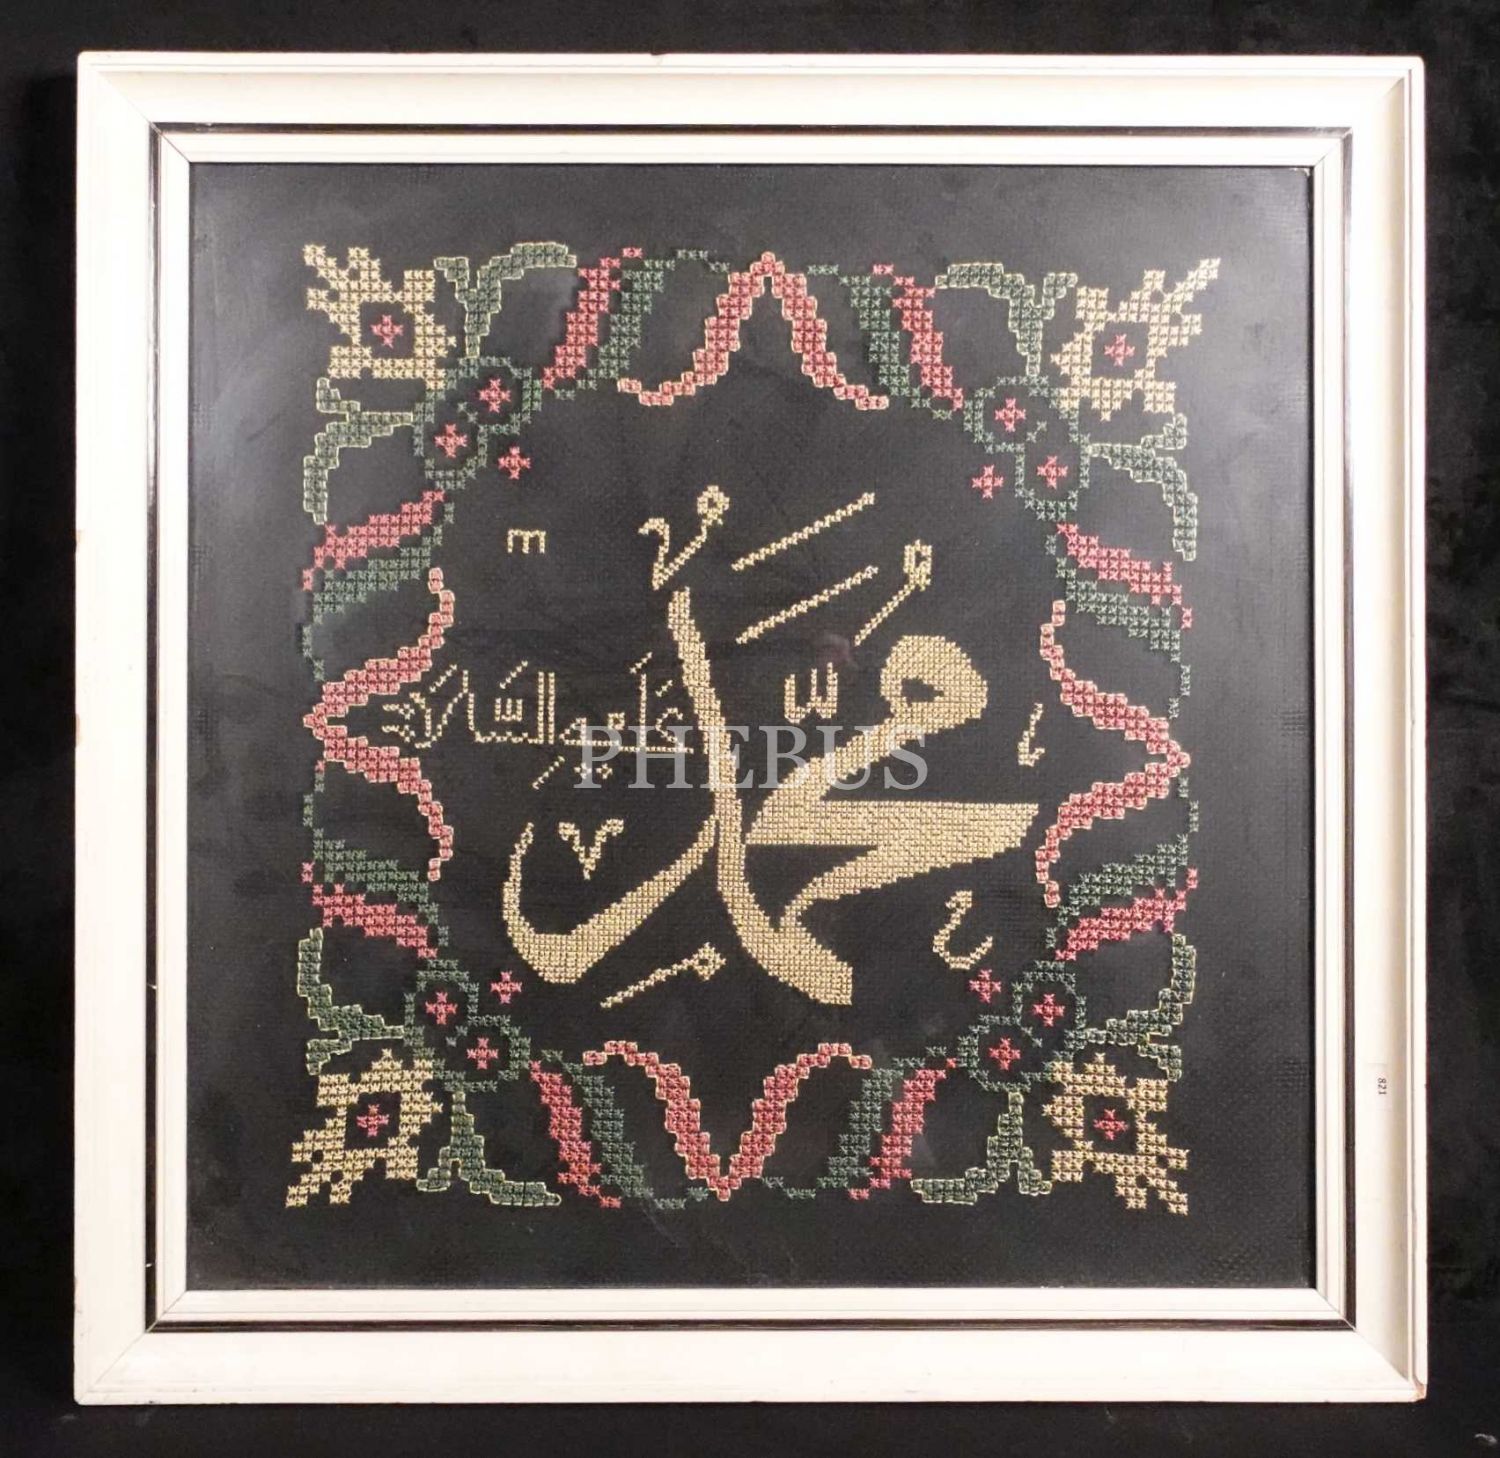 محمد
عليه السلام
PHEBUS
821